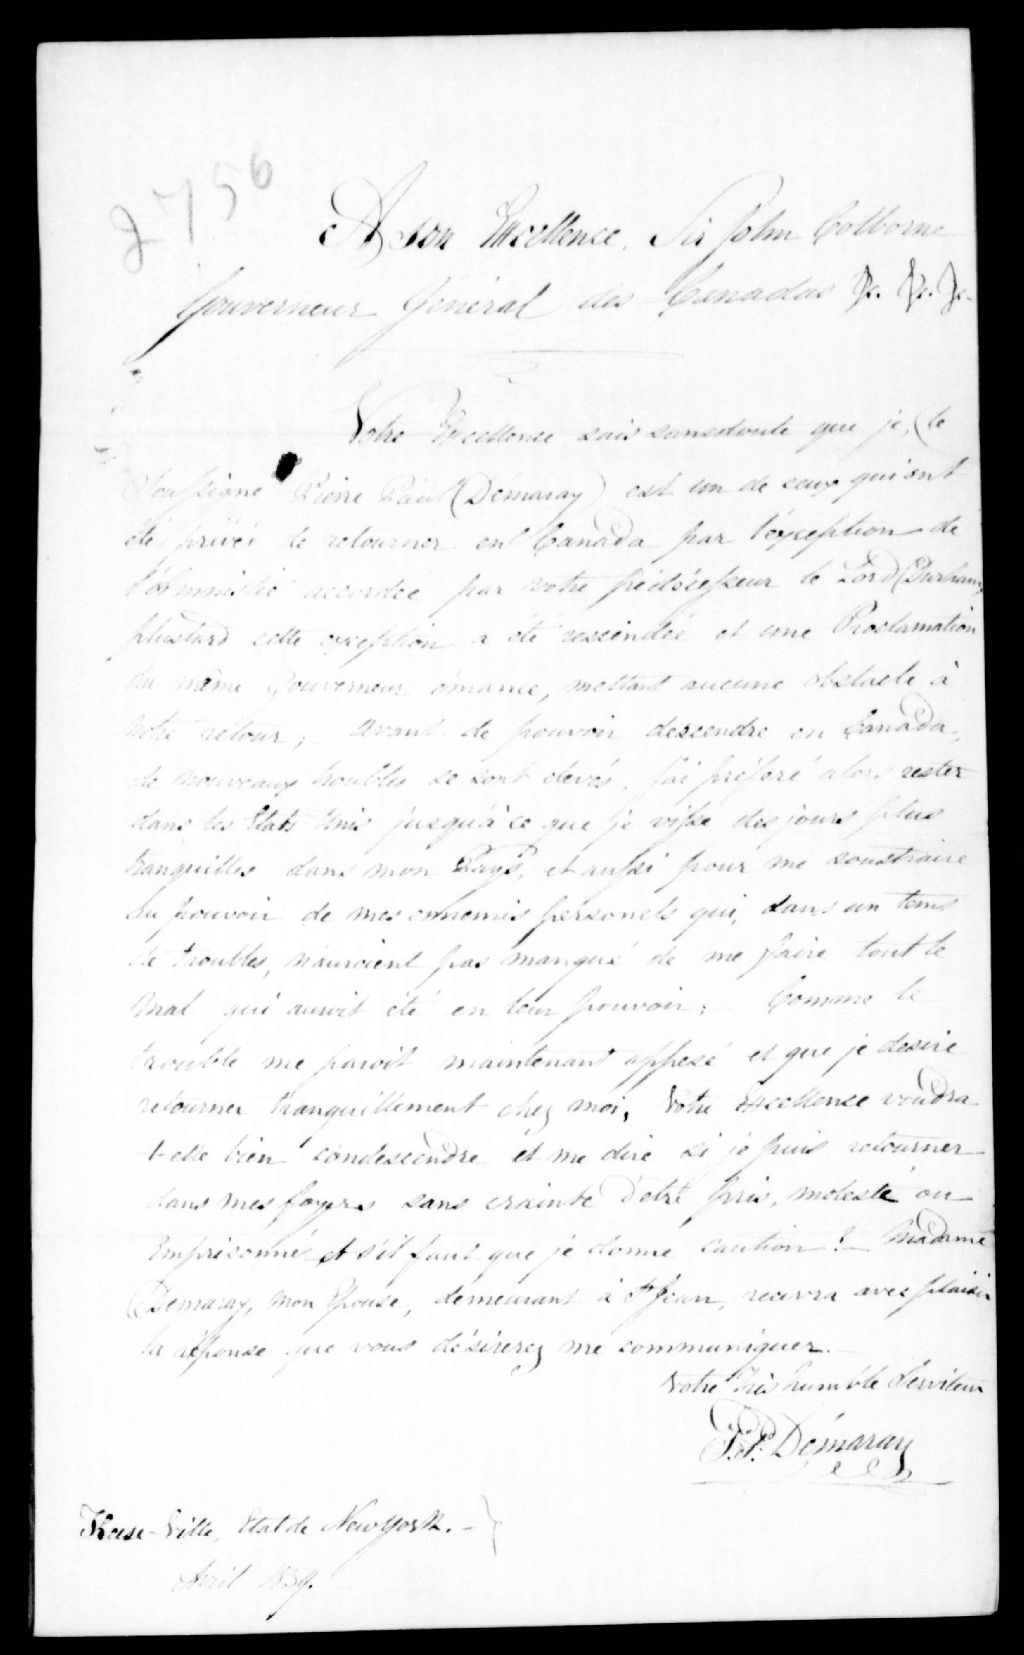 2756
A son Excellence, Sir John Colborne
Gouverneur Général des Canadas &c. &c. &c.
Votre Excellence sais sansdoute que je, (le
Soussigné Pierre Paul Demaray) est un de ceux qui ont
été privés de retourner en Canada par l'éxception de
l'Amnistie accordée par votre prédécesseur le Lord Durham,
plustard cette exception a été rescindée et une Proclamation
du même Gouverneur émanée, mettant aucune obstacle à
notre retour; avant de pouvoir descendre en Canada,
de nouveaux troubles se sont élevés. J'ai préféré alors rester
dans les Etats Unis jusqu'à ce que je visse des jours plus
tranquilles dans mon Pays, et aussi pour me soustraire
au pouvoir de mes ennemis personels qui, dans un tems
de troubles, n'auroient pas manqué de me faire tout le
mal qui auroit été en leur pouvoir; Comme le
trouble me paroit maintenant appesé et que je desire
retourner tranquillement chez moi, Votre Excellence voudra
t-elle bien condescendre et me dire si je puis retourner
dans mes foyers sans crainte d'etre pris, molesté ou
Emprisonné et s'il faut que je donne caution? Madame
Demaray, mon Epouse, demeurant à St Jean, recevra avec plaisir
la réponse que vous désirerez me communiquer.
Votre Très humble Serviteur
P. P. Démaray
Keese-Ville, Etat de New York.
Avril 1839.